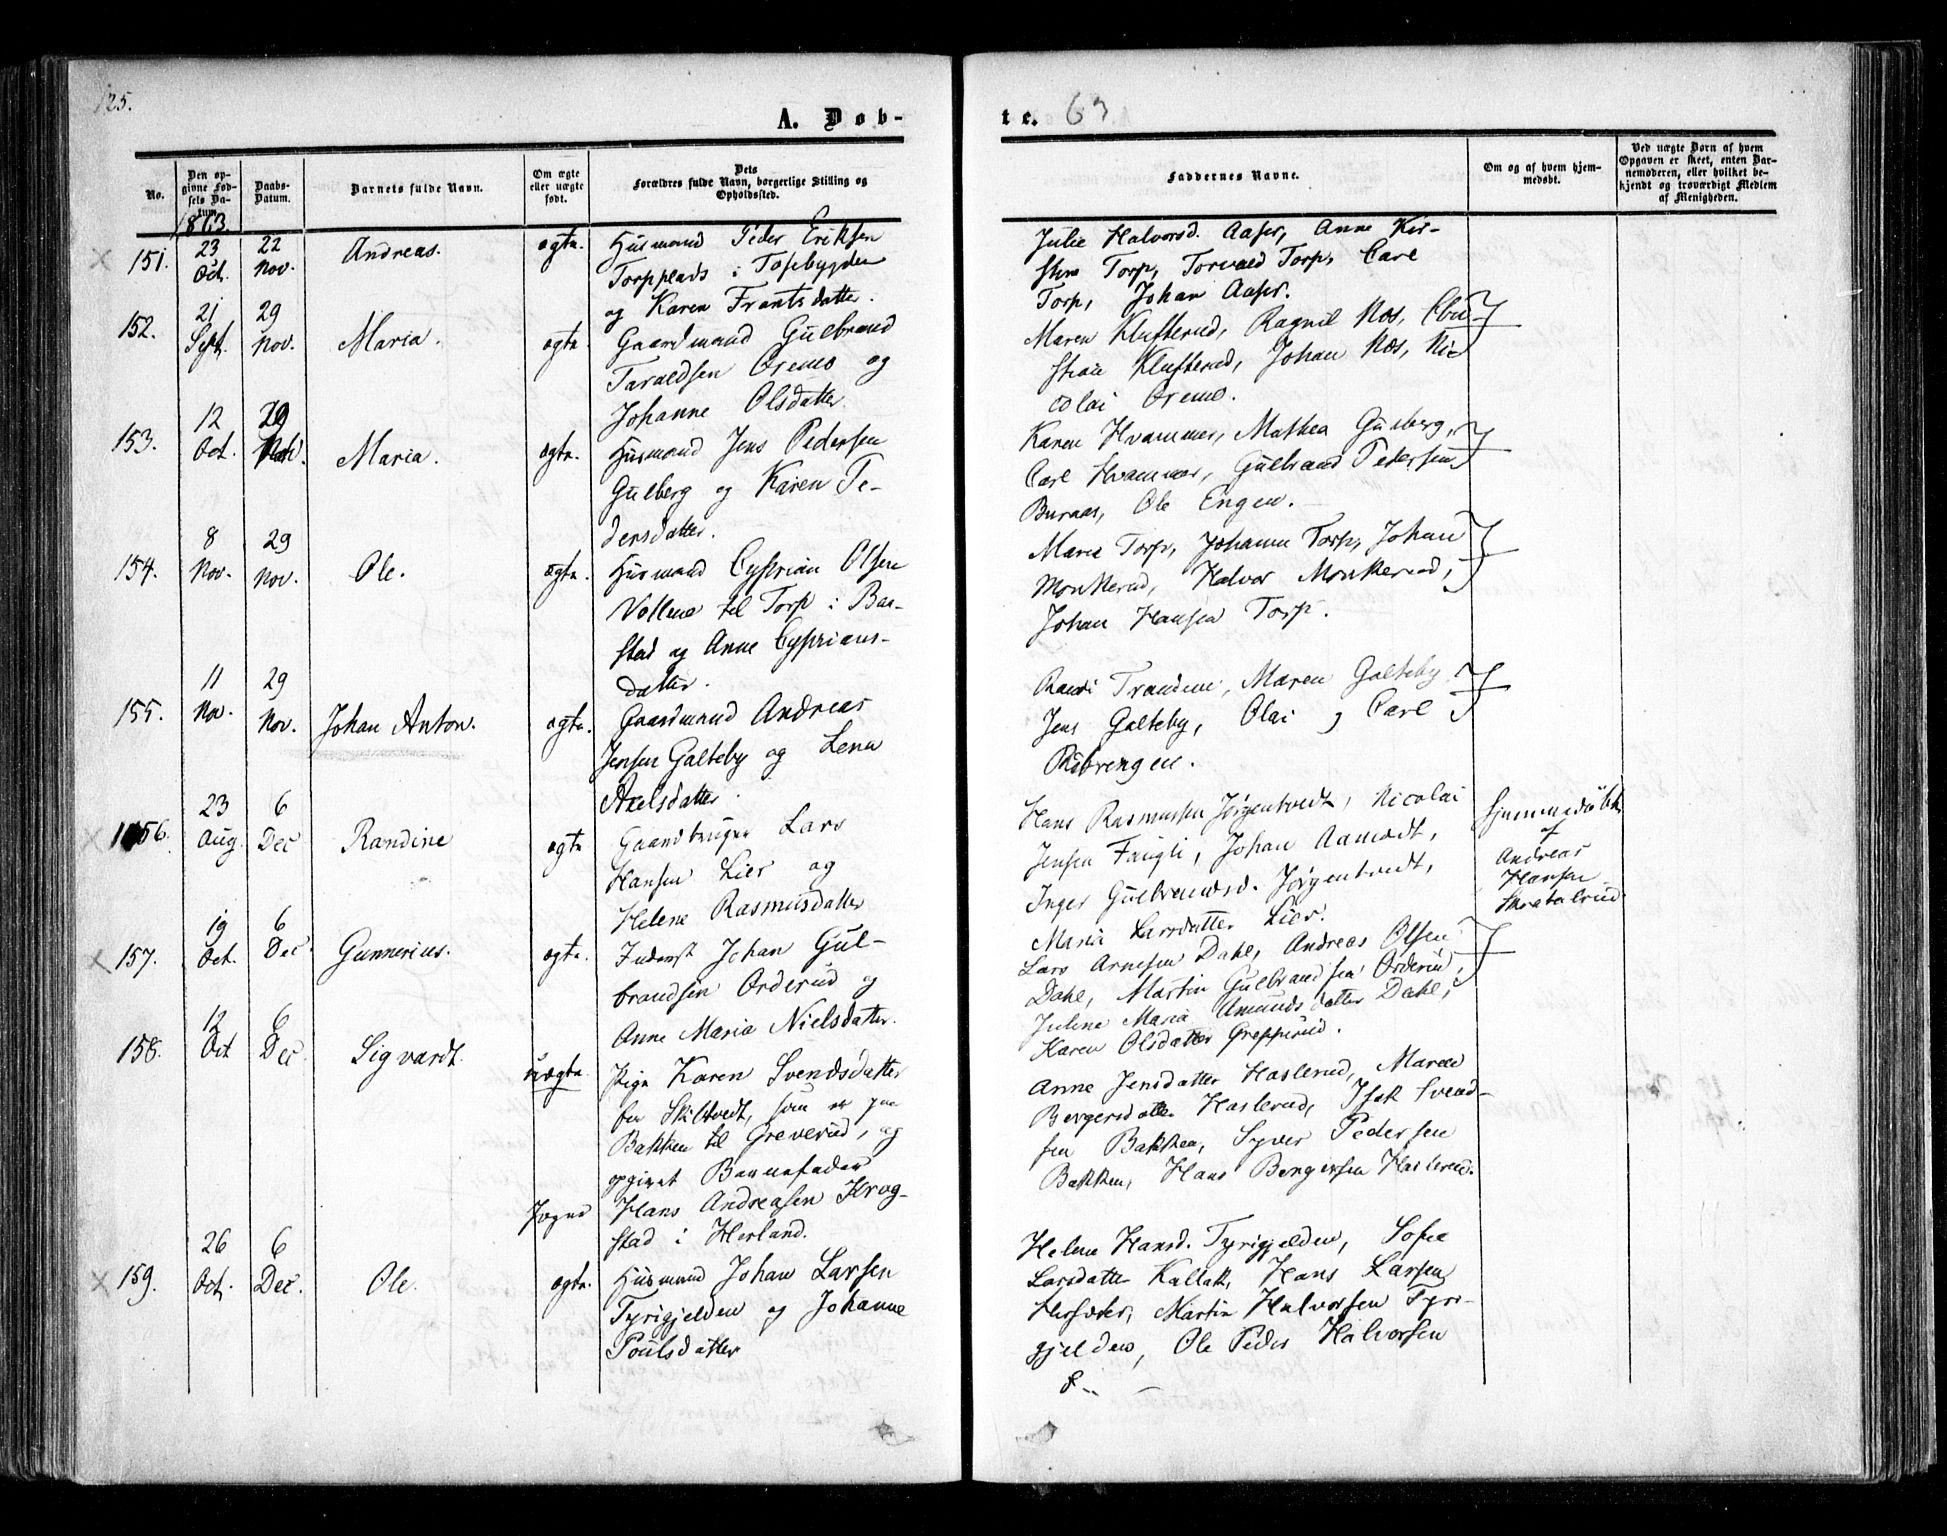 125.
A. Døb-
te. 63
No.
Den op-
givne Fød-
sels Da-
tum.
Daabs-
Datum.
Barnets fulde Navn.
Om ægte
eller uægte
født.
Dets
Forældres fulde Navn, borgerlige Stilling og
Opholdssted.
Faddernes Navne.
Om og af hvem hjem-
medøbt.
Ved uægte Børn af hvem
Opgaven er skeet, enten Bar-
nemoderen, eller hvilket be-
kjendt og troværdigt Medlem
af Menigheden.
1863.
151. 23 Oct. 22 Nov. Andreas. ægte.
Husmand Peder Eriksen
Torpplads i Tosebygden
og Karen Frantsdatter.
Julie Halvorsd. Aaser, Anne Kir-
stine Torp, Torvald Torp, Carl
Torp, Johan Aaser.
152. 21 Sept. 29 Nov. Maria. ægte.
Gaardmand Gulbrand
Taraldsen Oremo og
Johanne Olsdatter
Maren Klufterud, Ragnil Næs, Chri-
stian Klufterud, Johan Næs, Ni-
colai Oremo.
153. 12 Oct. 29 Nov. Maria. ægte.
Husmand Jens Pedersen
Gulberg og Karen Pe-
dersdatter.
Karen Hvammer, Mathea Gulberg,
Carl Hvammer, Gulbrand Pedersen
Buraas, Ole Engen.
154. 8 Nov. 29 Nov. Ole. ægte.
Husmand Cyprian Olsen
Vollene til Torp i Baa-
stad og Anne Cyprians-
datter.
Maria Torp, Johanne Torp, Johan
Monkerud, Halvor Monkerud,
Johan Hansen Torp.
155. 11 Nov. 29 Nov. Johan Anton. ægte.
Gaardmand Andreas
Jensen Galteby og Lena
Axelsdatter.
Randi Trandem, Maren Galteby
Jens Galteby, Olai og Carl
Ribrengen.
156. 23 Aug. 6 Dec Randine ægte
Gaardbruger Lars
Hansen Lier og
Helene Rasmusdatter
Hans Rasmussen Jørgentvedt, Nicolai
Jensen Fangli, Johan Aamodt,
Inger Gulbrandsd. Jørgentvedt,
Maria Larsdatter Lier.
Hjemmedøbt
af
Andreas
Hansen
Skrabalrud.
157. 19 Oct. 6 Dec. Gunnerius. ægte.
Inderst Johan Gul-
brandsen Orderud og
Anne Maria Nielsdatter.
Lars Arnesen Dahl, Andreas Olsen
Dahl, Martin Gulbrandsen Orderud,
Juline Maria Amundsdatter Dahl,
Karen Olsdatter Grefsrud.
158. 12 Oct 6 Dec. Sigvardt. uægte.
Pige Karen Svendsdatter
fra Skiltvedt, som er paa
Bakken til Greverud, og
opgivet Barnefader
Hans Andreasen Krog-
stad i Herland.
Anne Jensdatter Haslerud, Maren
Bergersdatter Haslerud, Isak Svend-
sen Bakken, Syver Pedersen
Bakken, Hans Bergersen Haslerud.
159. 26 Oct. 6 Dec. Ole. ægte.
Husmand Johan Larsen
Tyrigjelden og Johanne
Poulsdatter
Helene Hansd. Tyrigjelden, Sofie
Larsdatter Kallak, Hans Larsen
Hersæter, Martin Halvorsen Tyri-
gjelden, Ole Peder Halvorsen